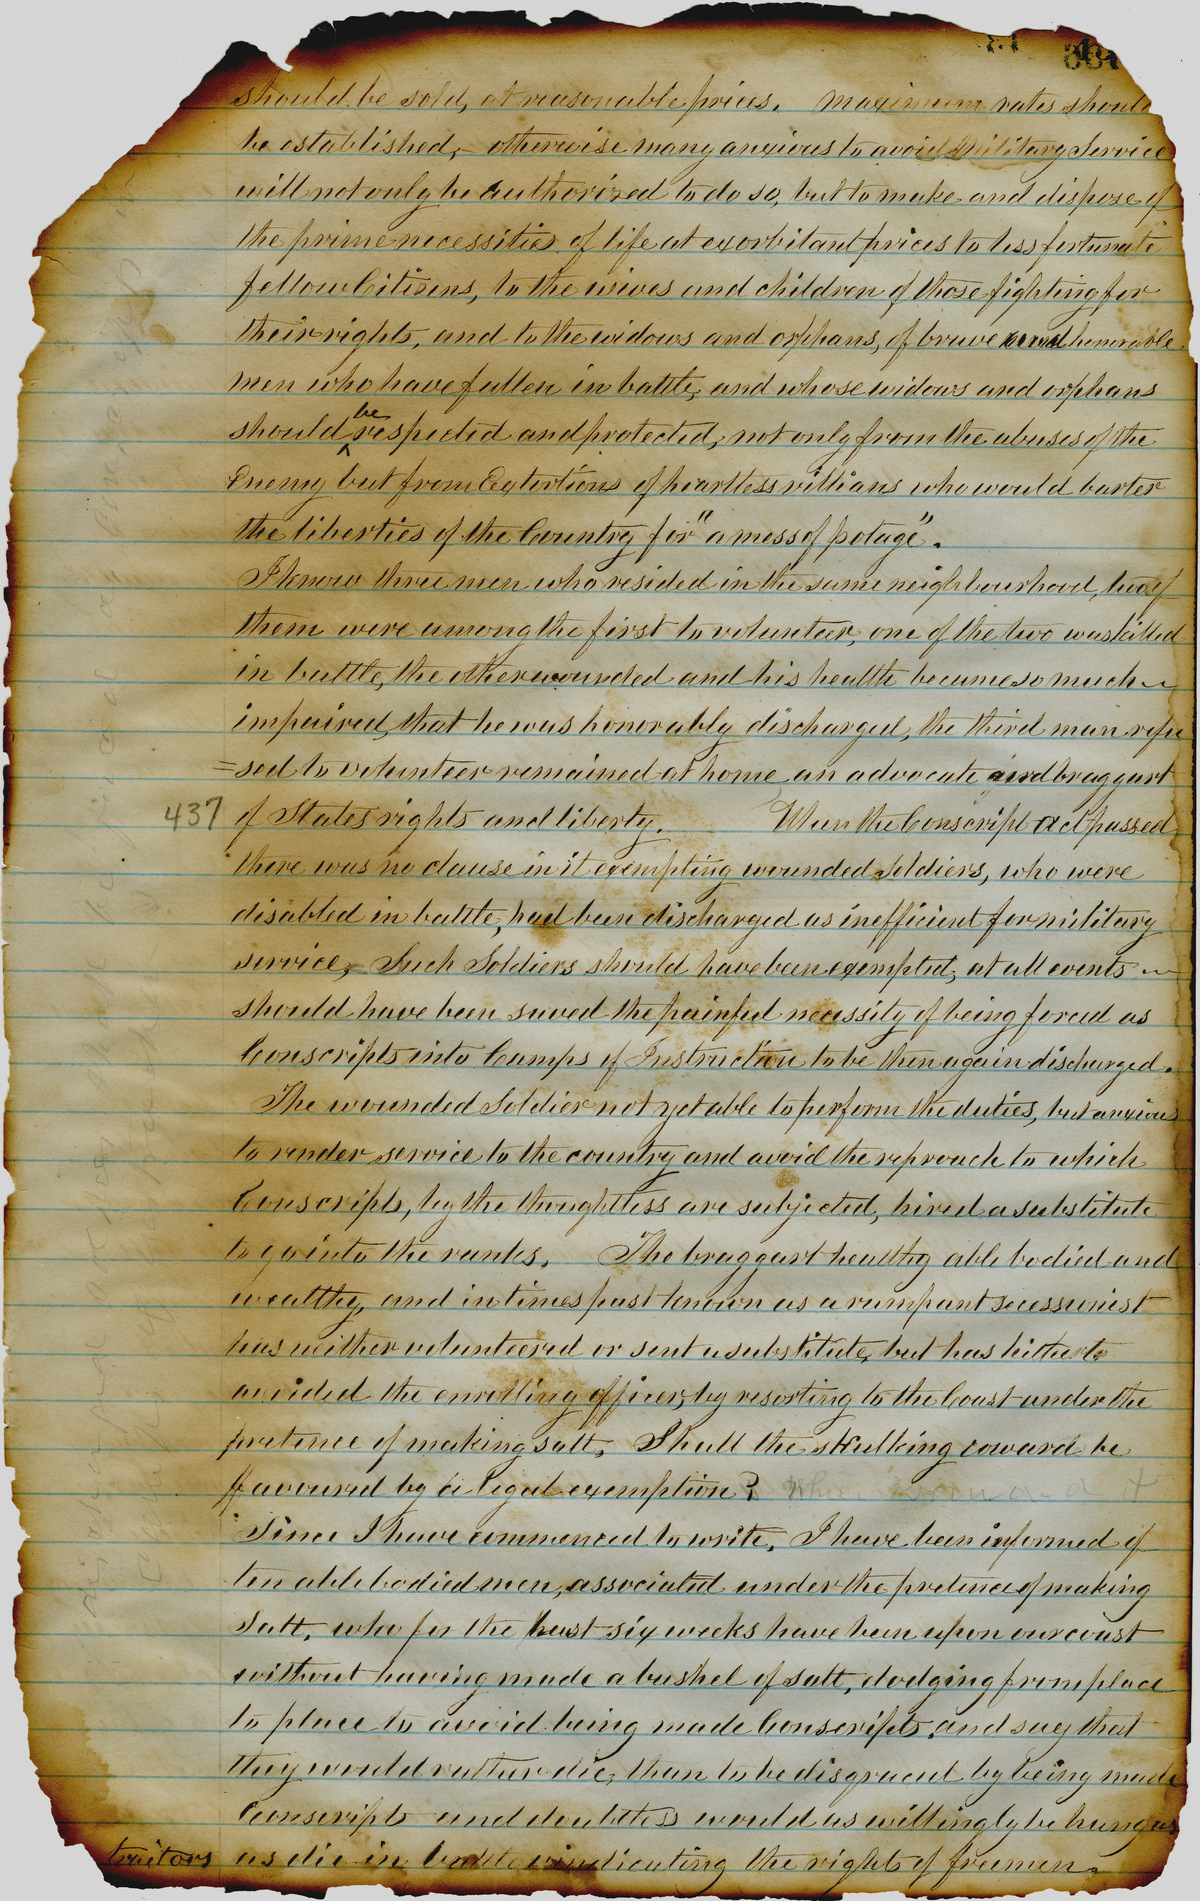 should be sold, at reasonable prices. maximum rates should
be established, otherwise many anxious to avoid Military Service
will not only be authorized to do so, but to make and dispose of
the prime necessities of life at exorbitant prices to less fortunate
fellow Citizens, to the wives and children of those fighting for
their rights, and to the widows and orphans, of brave and honorable
men who have fallen in battle, and whose widows and orphans
should be respected and protected, not only from the abuses of the
Enemy but from Extortions of heartless villians who would barter
the liberties of the Country for "a mess of potage".
I know three men who resided in the same neighbourhood, two of
them were among the first to volunteer, one of the two was killed
in battle, the other wounded and his health became so much
impaired, that he was honorably discharged, the third man refu
=sed to volunteer remained at home an advocate and braggart
437 of States rights and liberty. When the Conscript act passed
there was no clause in it exempting wounded Soldiers, who were
disabled in battle, had been discharged as inefficient for military
service, Such Soldiers should have been exempted, at all events
should have been saved the painful necessity of being forced as
Conscripts into Camps of Instruction to be then again discharged.
The wounded Soldier not yet able to perform the duties, but anxious
to render service to the country and avoid the reproach to which
Conscripts, by the thoughtless are subjected, hired a substitute
to go into the ranks. The braggart healthy able bodied and
wealthy, and in times past known as a rampant secessionest
has neither volunteered or sent a substitute, but has hitherto
avoided the enrolling officer, by resorting to the Coast under the
pretence of making salt. Shall the skulking coward be
favoured by a legal exemption?
Since I have commenced to write, I have been informed of
ten able bodied men, associated under the pretence of making
Salt, who for the last six weeks have been upon our coast
without having made a bushel of salt, dodging from place
to place to avoid being made Conscripts, and say that
they would rather die, than to be disgraced by being made
Conscripts and doubtless would as willingly be hung as
traitors as die in battle vindicating the rights of freemen.